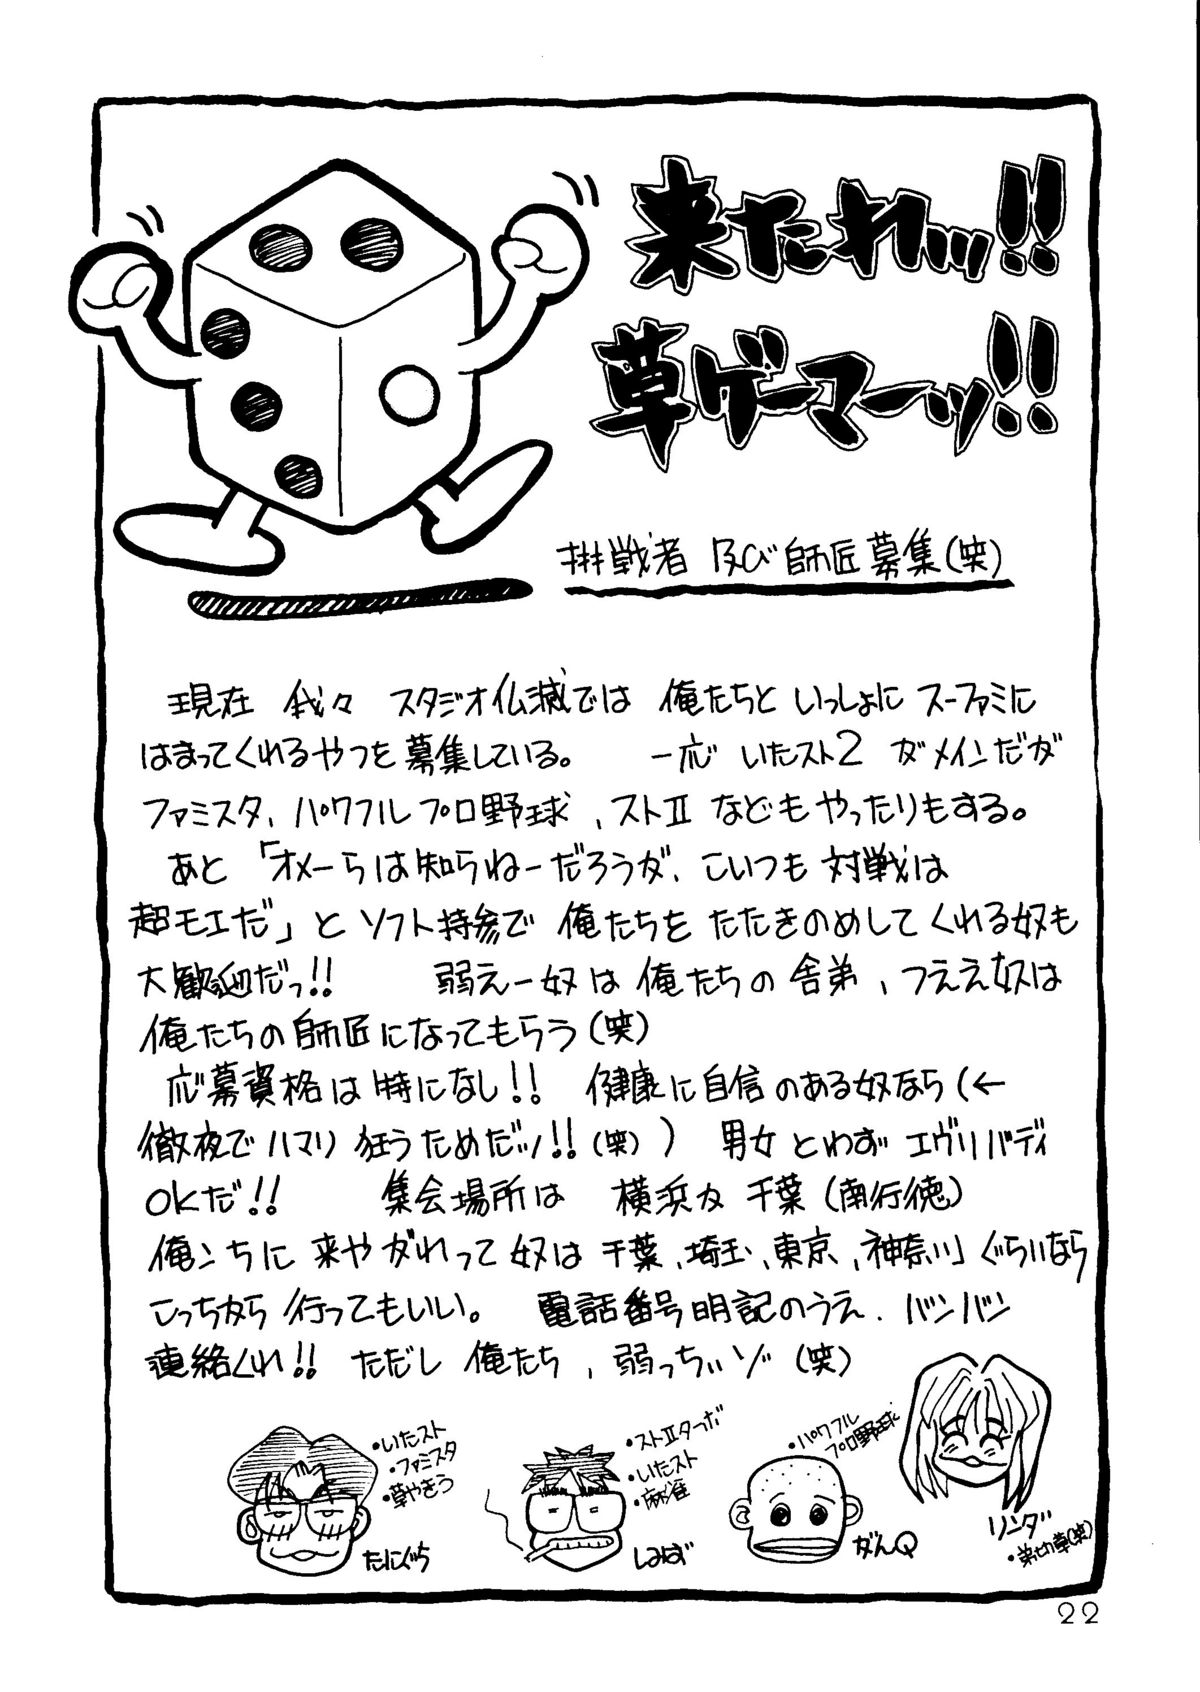 来たれッ!!
草ゲーマーッ!!
挑戦者 及び師匠募集(笑)
現在 我々 スタジオ仏滅では 俺たちと いっしょに スーファミに
はまってくれるやつを募集している。 一応 いたスト2 がメインだが
ファミスタ、パワフルプロ野球、ストⅡ などもやったりもする。
あと「オメーらは知らねーだろうが、こいつも 対戦は
超モエだ」と ソフト持参で 俺たちを たたきのめしてくれる奴も
大歓迎だっ!! 弱えー奴は俺たちの舎弟、つええ奴は
俺たちの師匠になってもらう(笑)
応募資格は特になし!! 健康に自信のある奴なら(←
徹夜でハマリ狂うためだッ!!(笑)) 男女とわず エヴリバディ
OKだ!! 集会場所は 横浜か 千葉(南行徳)
俺ンちに 来やがれって奴は 千葉、埼玉、東京、神奈川ぐらいなら
こっちから 行ってもいい。 電話番号明記のうえ、バンバン
連絡くれ!! ただし 俺たち、弱っちぃゾ(笑)
・いたスト
・ファミスタ
・草やきう
たにぐち
・ストⅡターボ
・いたスト
・麻雀
しみず
・パワフル
プロ野球
がんQ
リンダ